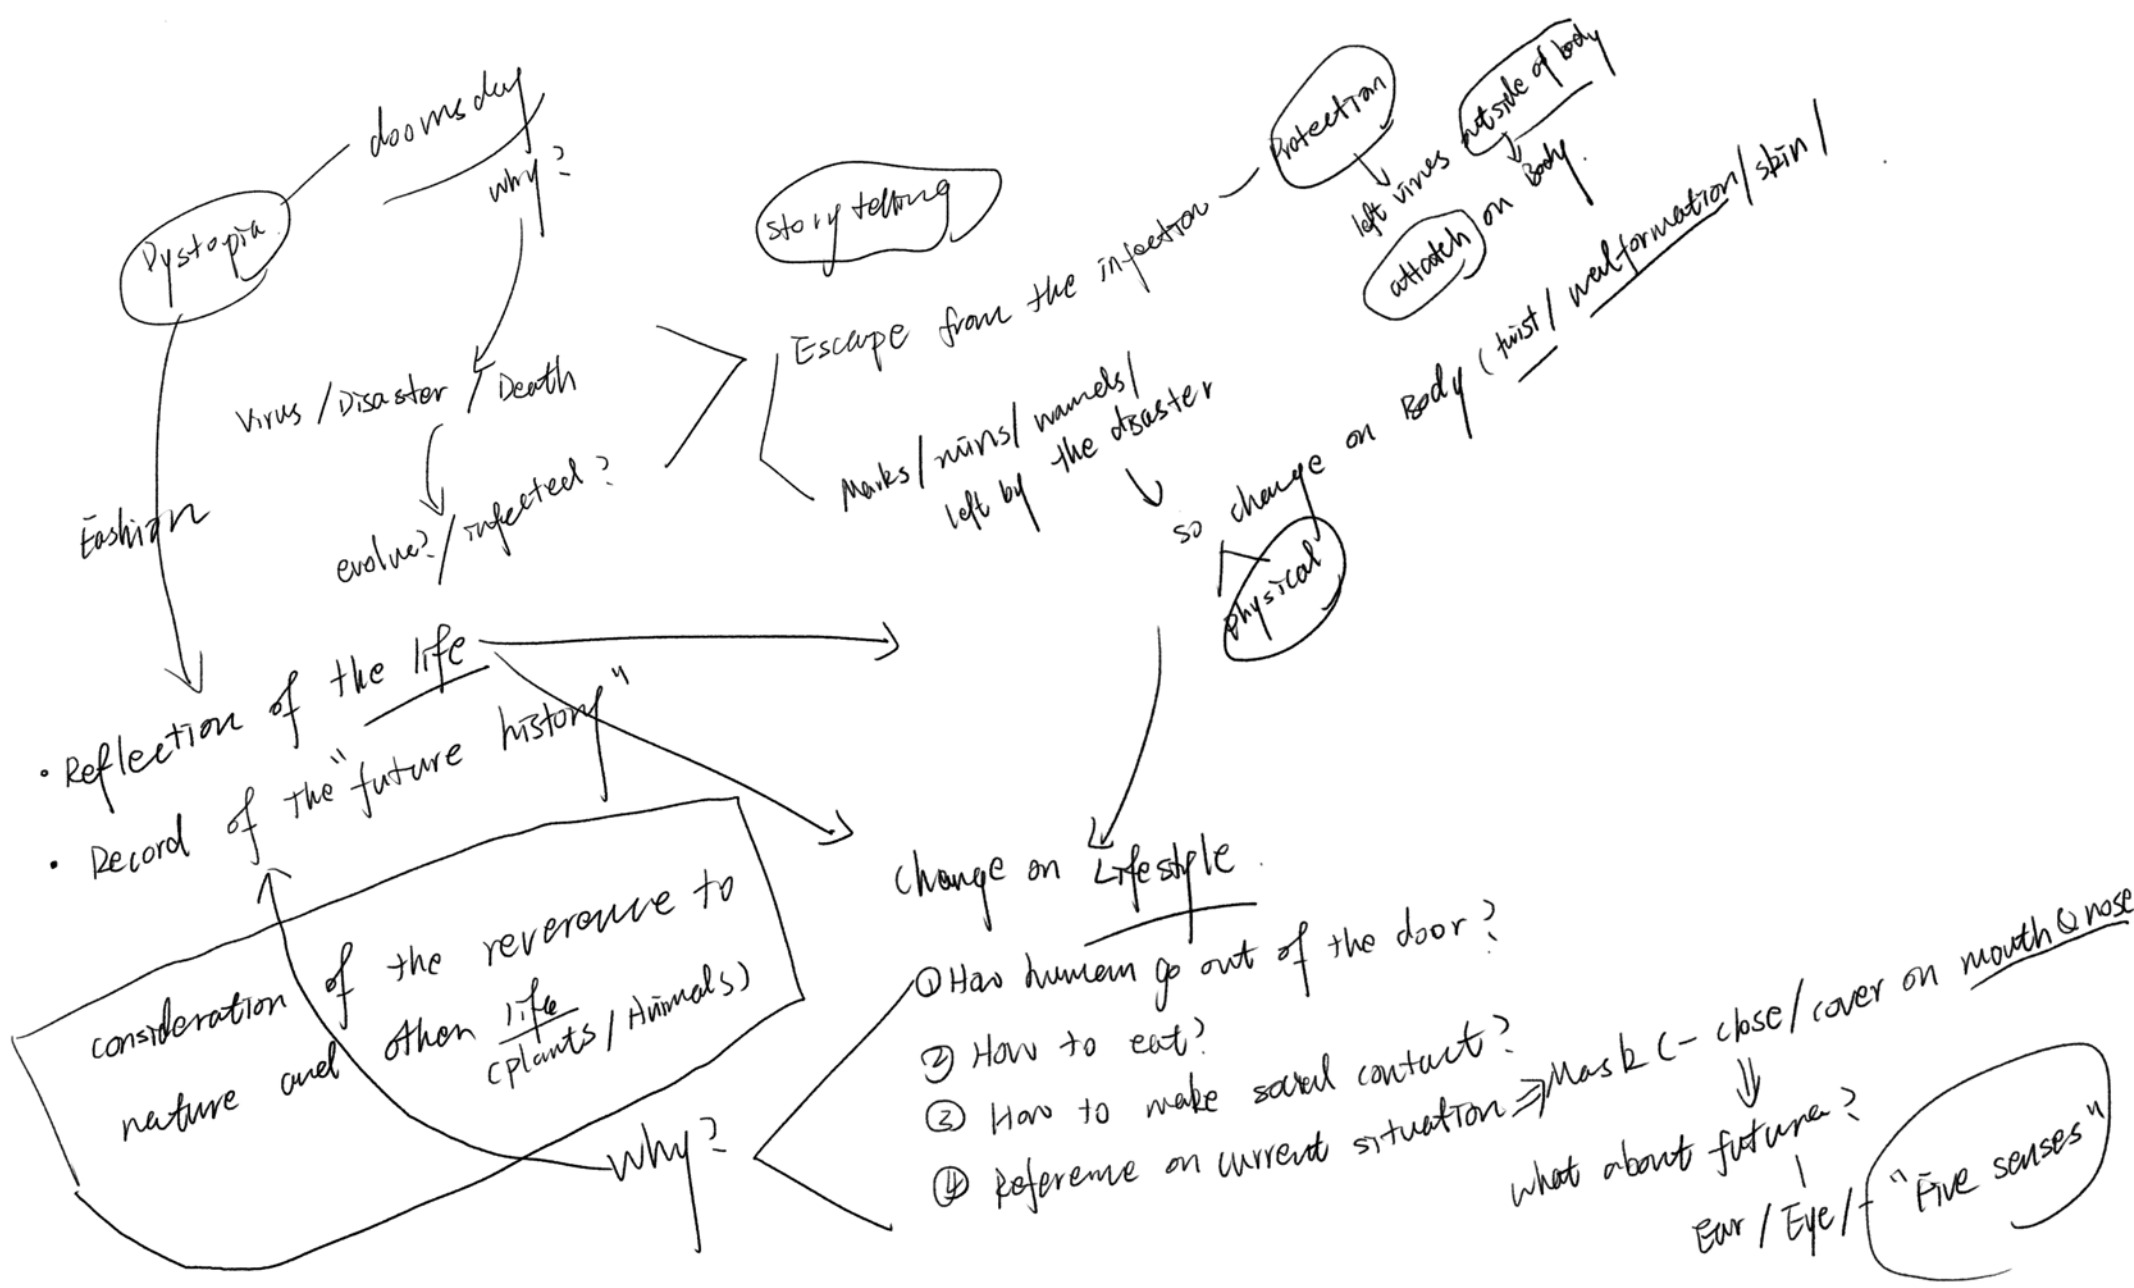 doomsday
why?
Dystopia
Virus / Disaster / Death
evolve? / infected?
Fashion
storytelling
Escape from the infection
Protection
left virus
outside of body
Body.
attatch on
Marks / / /
left by the disaster
so change on Body ( twist / malformation / skin /
physical
• Reflection of the life
• Record of the "future history"
consideration of the reverence to
nature and other life
(plants / Animals)
why?
Change on Lifestyle.
① How human go out of the door?
② How to eat?
③ How to make social contact?
④ Reference on current situation ⇒ Mask (- close / cover on mouth & nose
what about future?
Ear / Eye / - "Five senses"